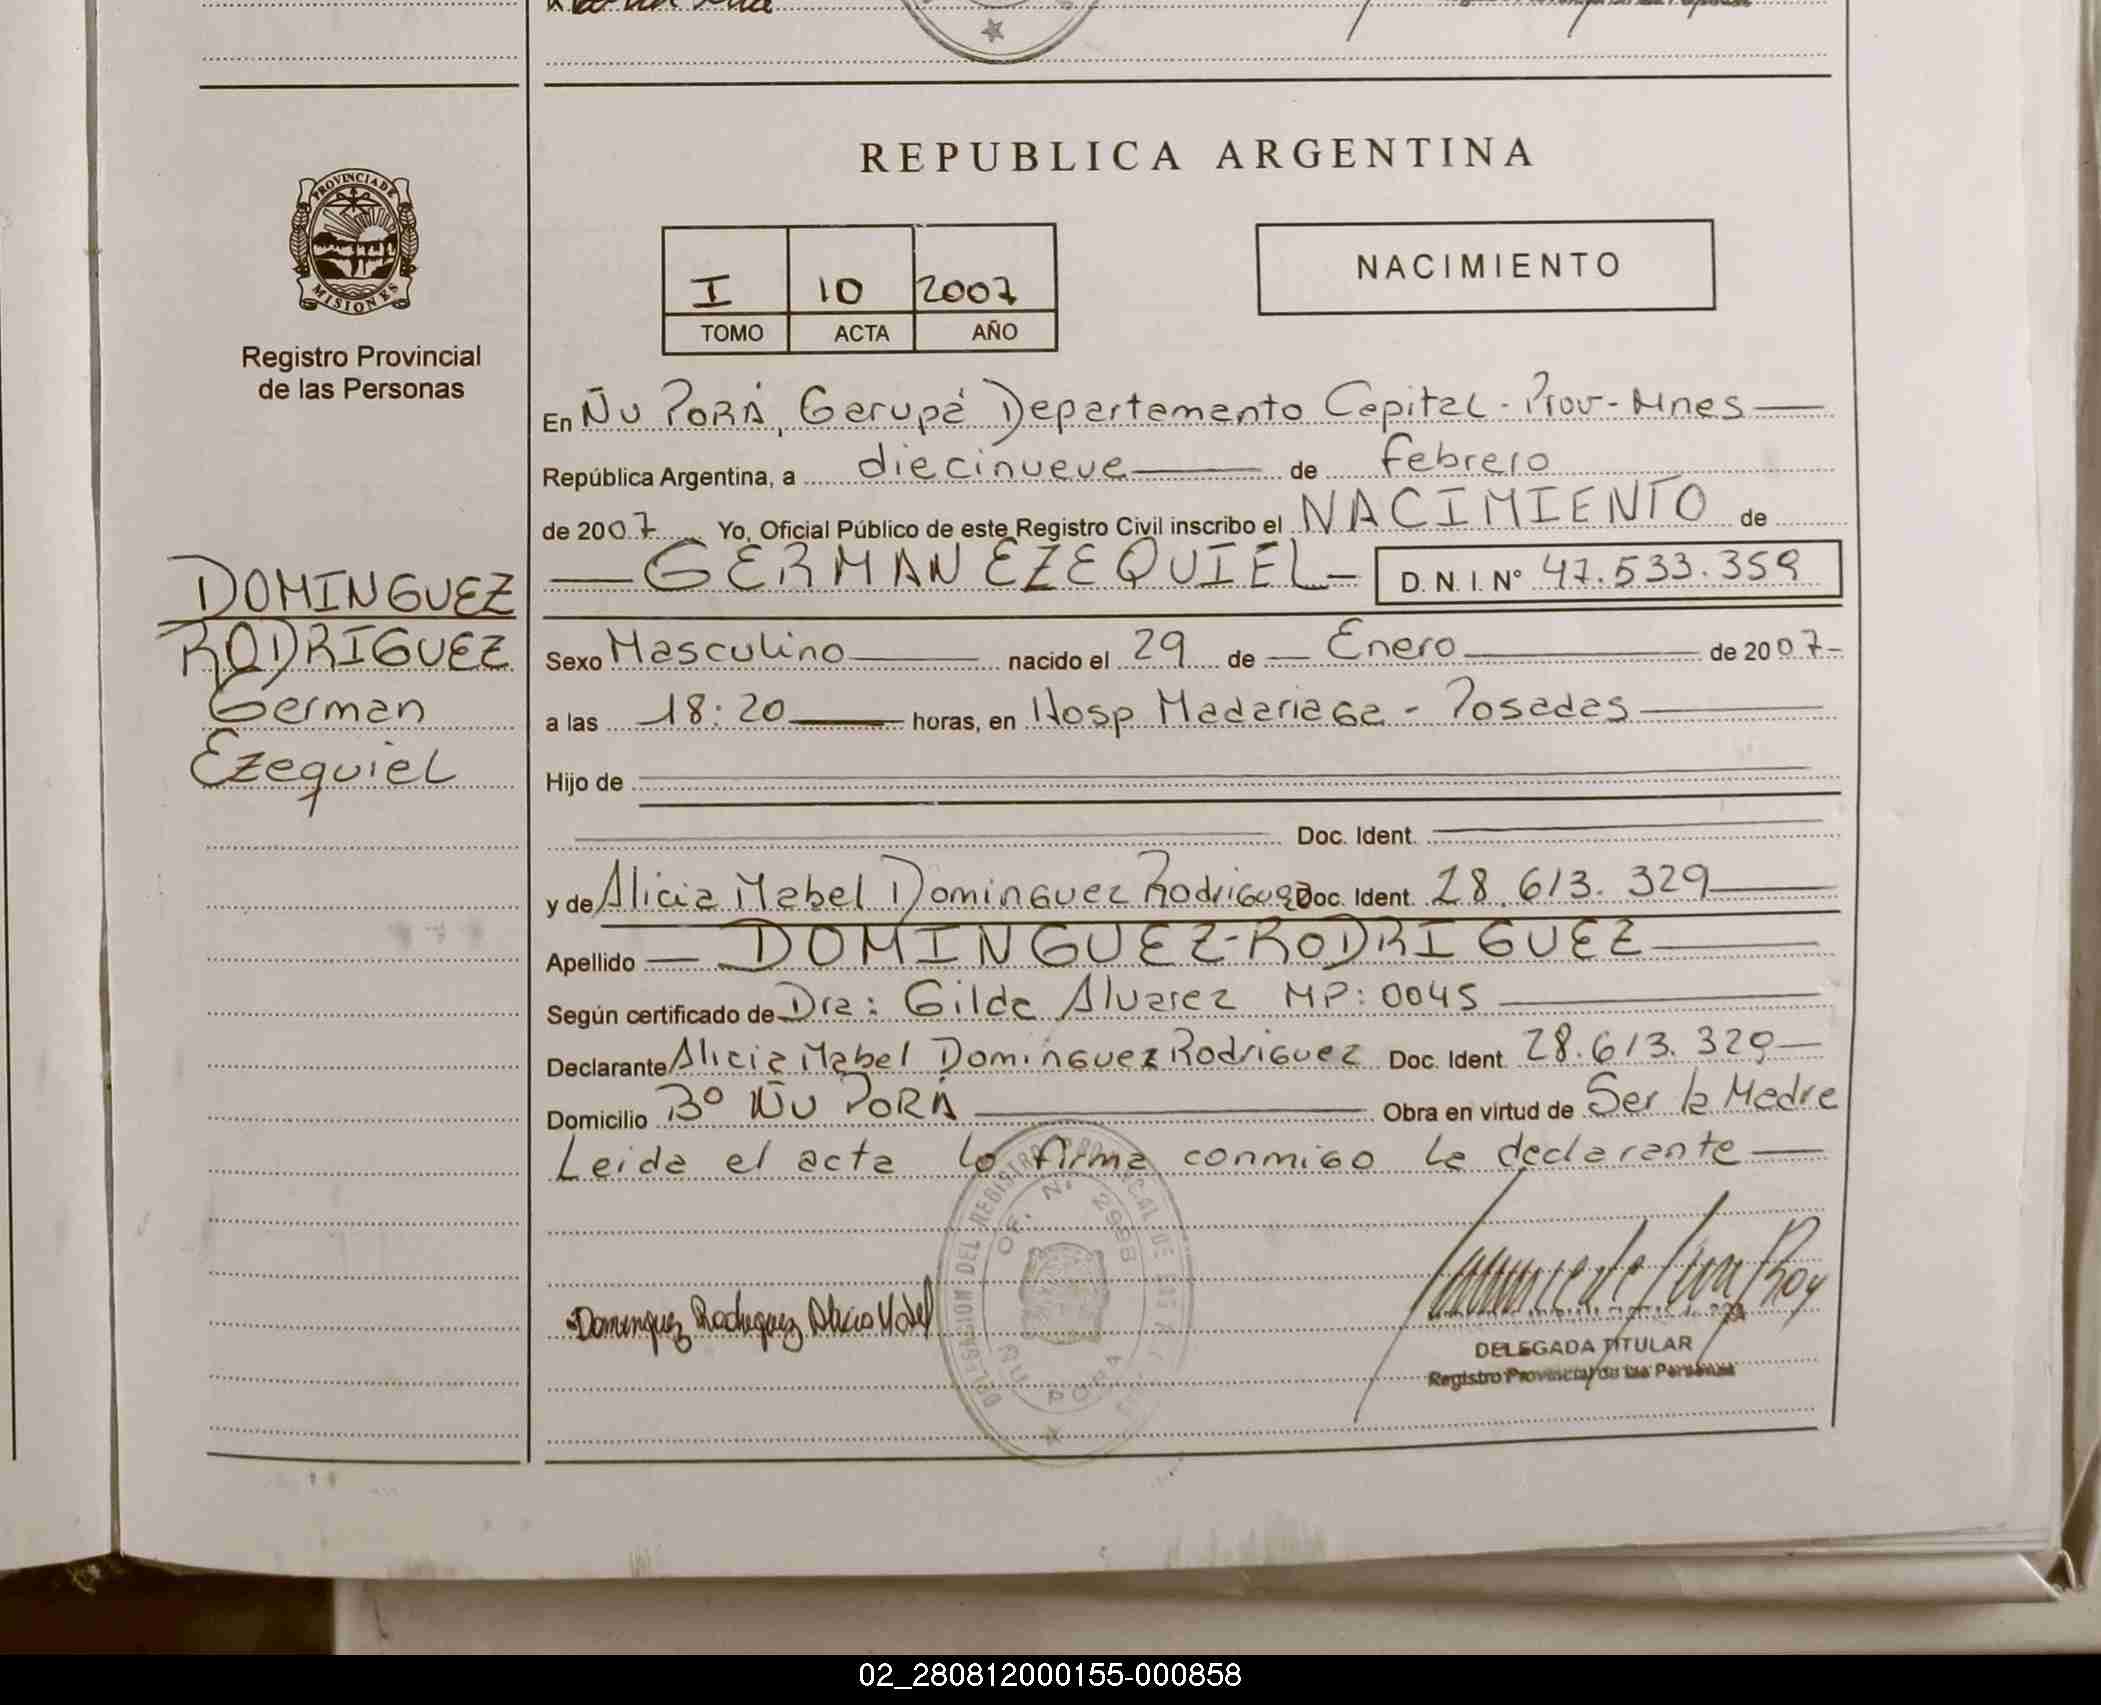 REPUBLICA ARGENTINA
PROVINCIA DE
MISIONES
Registro Provincial
de las Personas
I 10 2007
TOMO ACTA AÑO
NACIMIENTO
En Ñu Porá, Garupá Departamento Capital - Prov - Mnes
República Argentina, a diecinueve de febrero
de 2007 Yo, Oficial Público de este Registro Civil inscribo el NACIMIENTO de
GERMAN EZEQUIEL D.N.I. Nº 47.533.359
DOMINGUEZ
RODRIGUEZ
German
Ezequiel
Sexo Masculino nacido el 29 de Enero de 2007
a las 18:20 horas, en Hosp Madariaga - Posadas
Hijo de
Doc. Ident.
y de Alicia Mabel Dominguez Rodriguez Doc. Ident. 28.613.329
Apellido DOMINGUEZ-RODRIGUEZ
Según certificado de Dra: Gilda Alvarez MP: 0045
Declarante Alicia Mabel Dominguez Rodriguez Doc. Ident. 28.613.329
Domicilio Bº ÑU PORÁ Obra en virtud de Ser la Madre
Leida el acta lo firma conmigo la declarante
DELEGACION DEL REGISTRO PROVINCIAL DE
OF. Nº 2988
ÑU PORA
Dominguez Rodriguez Alicia Mabel
DELEGADA TITULAR
Registro Provincial de las Personas
02_280812000155-000858